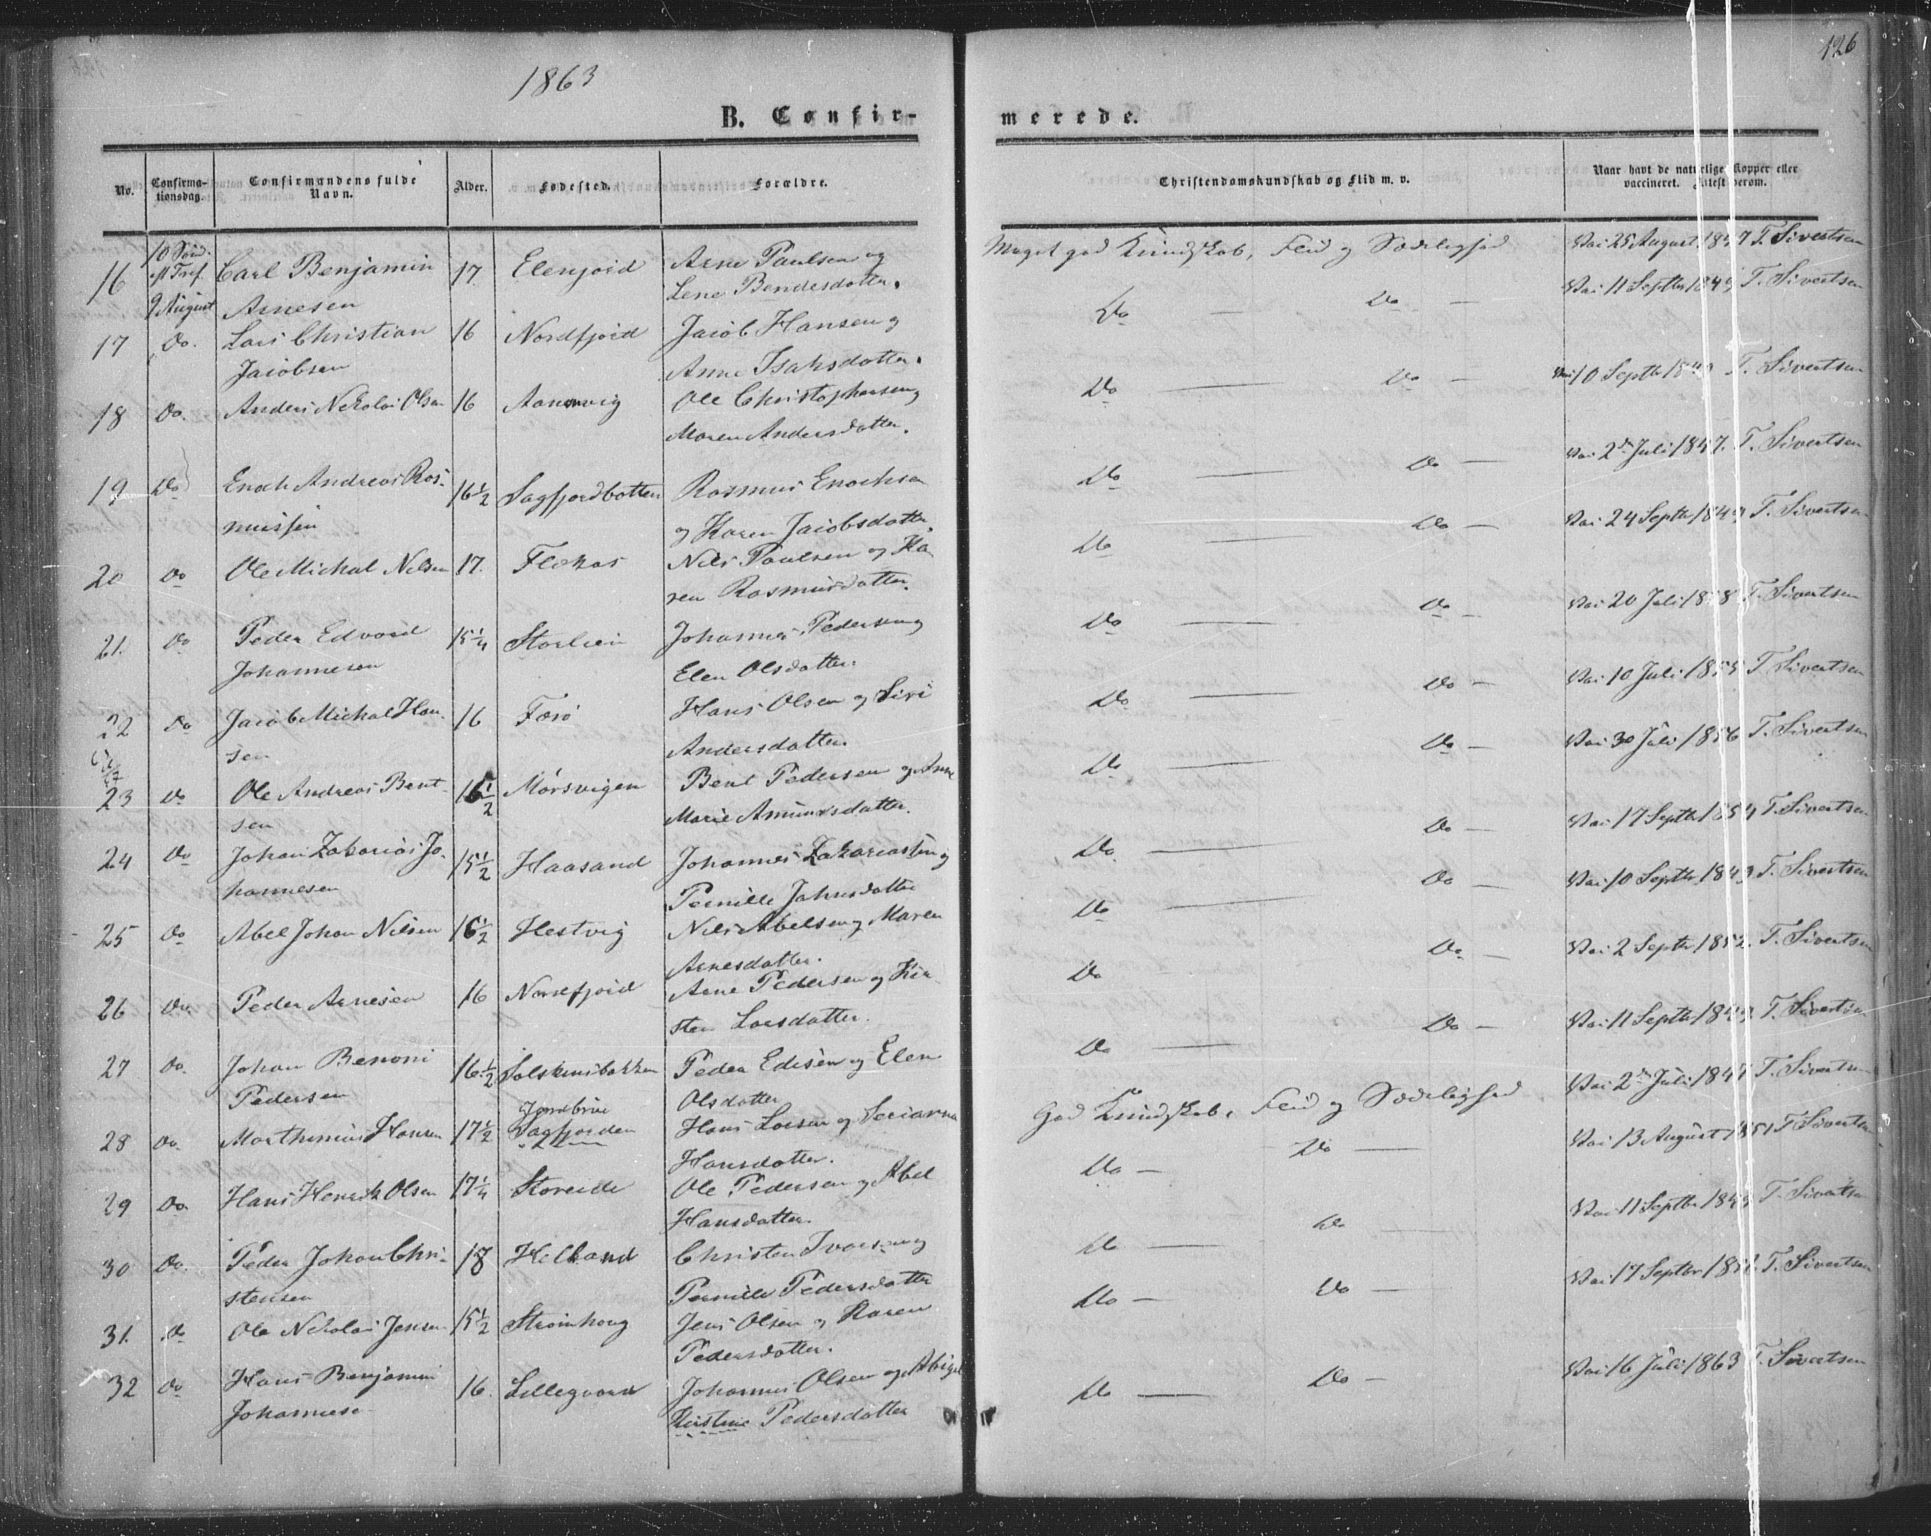 126
1863
B. Confir-
merede.
No.
Confirma-
tionsdag.
Confirmandens fulde
Navn.
Alder.
Fødested.
Forældre.
Christendomskundskab og Flid m. v.
Naar havt de naturlige Kopper eller
vaccineret. Attest derom.
16 10 Sønd. Carl Benjamin 17 Elvefjord Arne Paulsen og Meget god Kundskab, Flid og Sædelighed Vac 25 August 1847 T. Sivertsen
eft Tref. 9 August Arnesen Lene Bendesdatter.
17 Do. Lars Christian 16 Nordfjord Jacob Hansen og Do — Do — Vac 11 Septbr 1849 T. Sivertsen
Jacobsen Anne Isaksdatter.
18 Do. Anders Nikolai Olsen 16 Ole Christophersen og Do — Do — Vac 10 Septbr 1849 T. Sivertsen
Maren Andersdatter.
19 Do Enoch Andreas Ras- 16½ Sagfjordbotten Rasmus Enochsen Do — Do — Vac 2den Juli 1847. T. Sivertsen
mussen og Karen Jacobsdatter.
20 Do Ole Michal Nilsen 17. Flekas Nils Paulsen og Ka- Do — Do — Vac 24 Septbr 1849 T. Sivertsen
ren Rasmusdatter.
21. Do Peder Edvard 15¼ Storlien Johannes Pedersen og Do — Do — Vac 20 Juli 1858 T. Sivertsen
Johannesen Elen Olsdatter.
22 Do Jacob Michal Han- 16 Færø Hans Olsen og Siri Do — Do — Vac 10 Juli 1855 T. Sivertsen
sen Andersdatter.
23 Do Ole Andreas Bent- 15½ Mørsvigen Bent Pedersen og Anne Do — Do — Vac 30 Juli 1856 T. Sivertsen
sen Marie Amundsdatter.
24 Do Johan Zakarias Jo- 15½ Haasand Johannes Zakariassen og Do. — Do — Vac 17 Septbr 1854 T. Sivertsen
hannesen Pernille Jahnsdatter
25 Do Abel Johan Nilsen 16½ Hestvig Nils Abelsen og Maren Do — Do — Vac 10 Septbr 1849 T. Sivertsen
Arnesdatter.
26 Do. Peder Arnesen 16 Nordfjord Arne Pedersen og Kir- Do Do — Vac 2 Septbr 1852. T. Sivertsen
sten Larsdatter.
27 Do. Johan Benoni 16½ Solskinsbakken Peder Edisen og Elen Do — Do — Vac 11 Septbr 1849. T. Sivertsen
Pedersen Olsdatter
28 Do. Marthinus Hansen 17½ Sagfjorden Hans Larsen og God Kundskab, Flid og Sædelighed Vac 2den Juli 1847 T. Sivertsen
Hansdatter.
29 Do. Hans Henrik Olsen 17¼ Storeide Ole Pedersen og Abel Do — Do — Vac 13 August 1851 T. Sivertsen
Hansdatter.
30 Do. Peder Johan Chri- 18 Helland Christen Ivarsen og Do — Do Vac 11 Septbr 1849 T. Sivertsen
stensen Pernille Pedersdatter
31. Do Ole Nikolai Jensen 15½ Strømhaug Jens Olsen og Karen Do — Do — Vac 17 Septbr 1856 T. Sivertsen
Pedersdatter.
32 Do Hans Benjamin 16. Lillegaard Johannes Olsen og Abigel Do — Do — Vac 16 Juli 1863 T. Sivertsen
Johannese Kirstine Pedersdatter